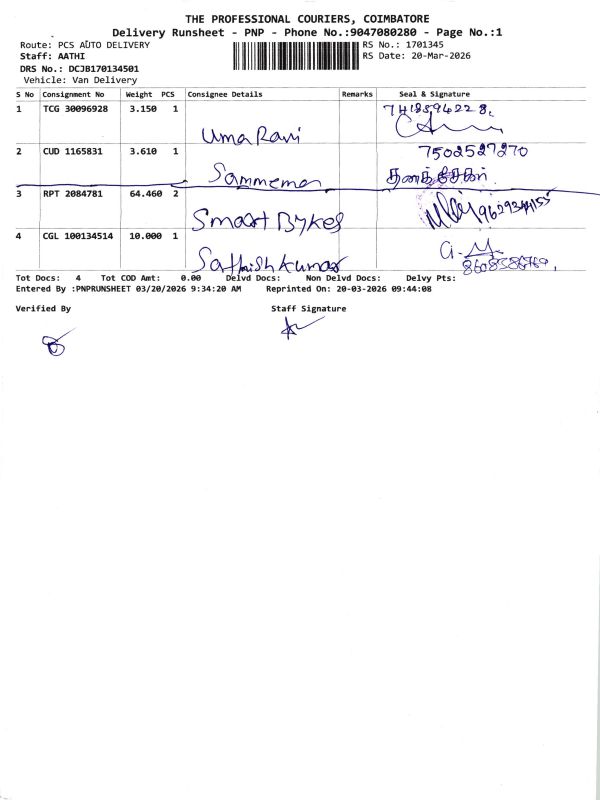 THE PROFESSIONAL COURIERS, COIMBATORE
Delivery Runsheet - PNP - Phone No.:9047080280 - Page No.:1
Route: PCS AUTO DELIVERY RS No.: 1701345
Staff: AATHI RS Date: 20-Mar-2026
DRS No.: DCJB170134501
Vehicle: Van Delivery
S No Consignment No Weight PCS Consignee Details Remarks Seal & Signature
1 TCG 30096928 3.150 1
Uma Rani
2 CUD 1165831 3.610 1 7502527270
3 RPT 2084781 64.460 2
Smart Bykes
4 CGL 100134514 10.000 1
Sathish kumar
Tot Docs: 4 Tot COD Amt: 0.00 Delvd Docs: Non Delvd Docs: Delvy Pts:
Entered By :PNPRUNSHEET 03/20/2026 9:34:20 AM Reprinted On: 20-03-2026 09:44:08
Verified By Staff Signature